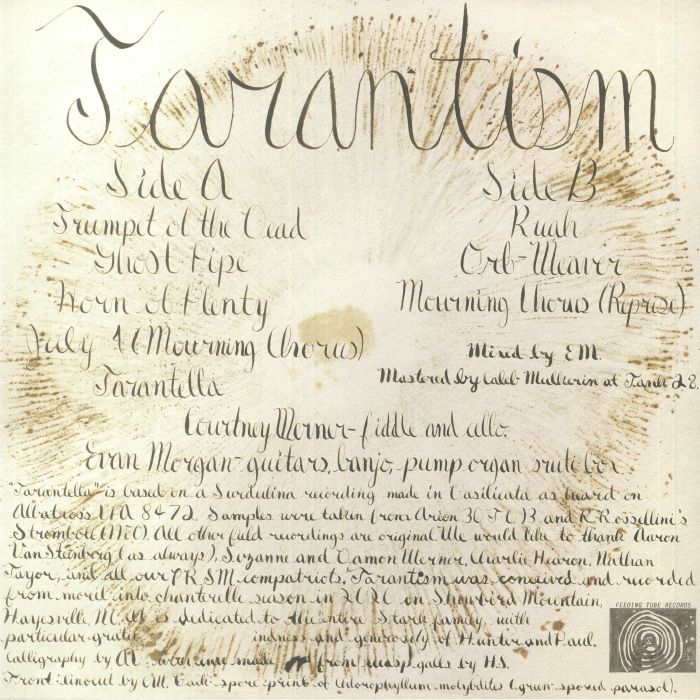 Tarantism
Side A
Trumpet of the Dead
Ghost Pipe
Horn of Plenty
July 4 (Mourning Chorus)
Tarantella
Side B
Ruah
Orb-Weaver
Mourning Chorus (Reprise)
Mixed by EM.
Mastered by Caleb Mulkerin at 28.
Courtney Werner- fiddle and cello.
Evan Morgan- guitars, banjo, pump organ sruti box.
"Tarantella" is based on a Surdulina recording made in Basilicata as heard on
Albatross VPA 8472. Samples were taken from Arion 30 and R. Rossellini's
Stromboli. All other field recordings are original We would like to thank Aaron
(as always), Suzanne and Damon Werner, Charlie Hearon, Nathan
Taylor, and all our compatriots. Tarantism was conceived and recorded
from morel into chanterelle season in 2020 on Mountain,
Hayesville, NC. It is dedicated to the entire Stark family with
particular and generosity of Hunter and Paul.
Calligraphy by ink made from wasp galls by H.S.
Front: linocut by EM. Back: spore print of Chlorophyllum molybdites (green-spored parasol).
FEEDING TUBE RECORDS